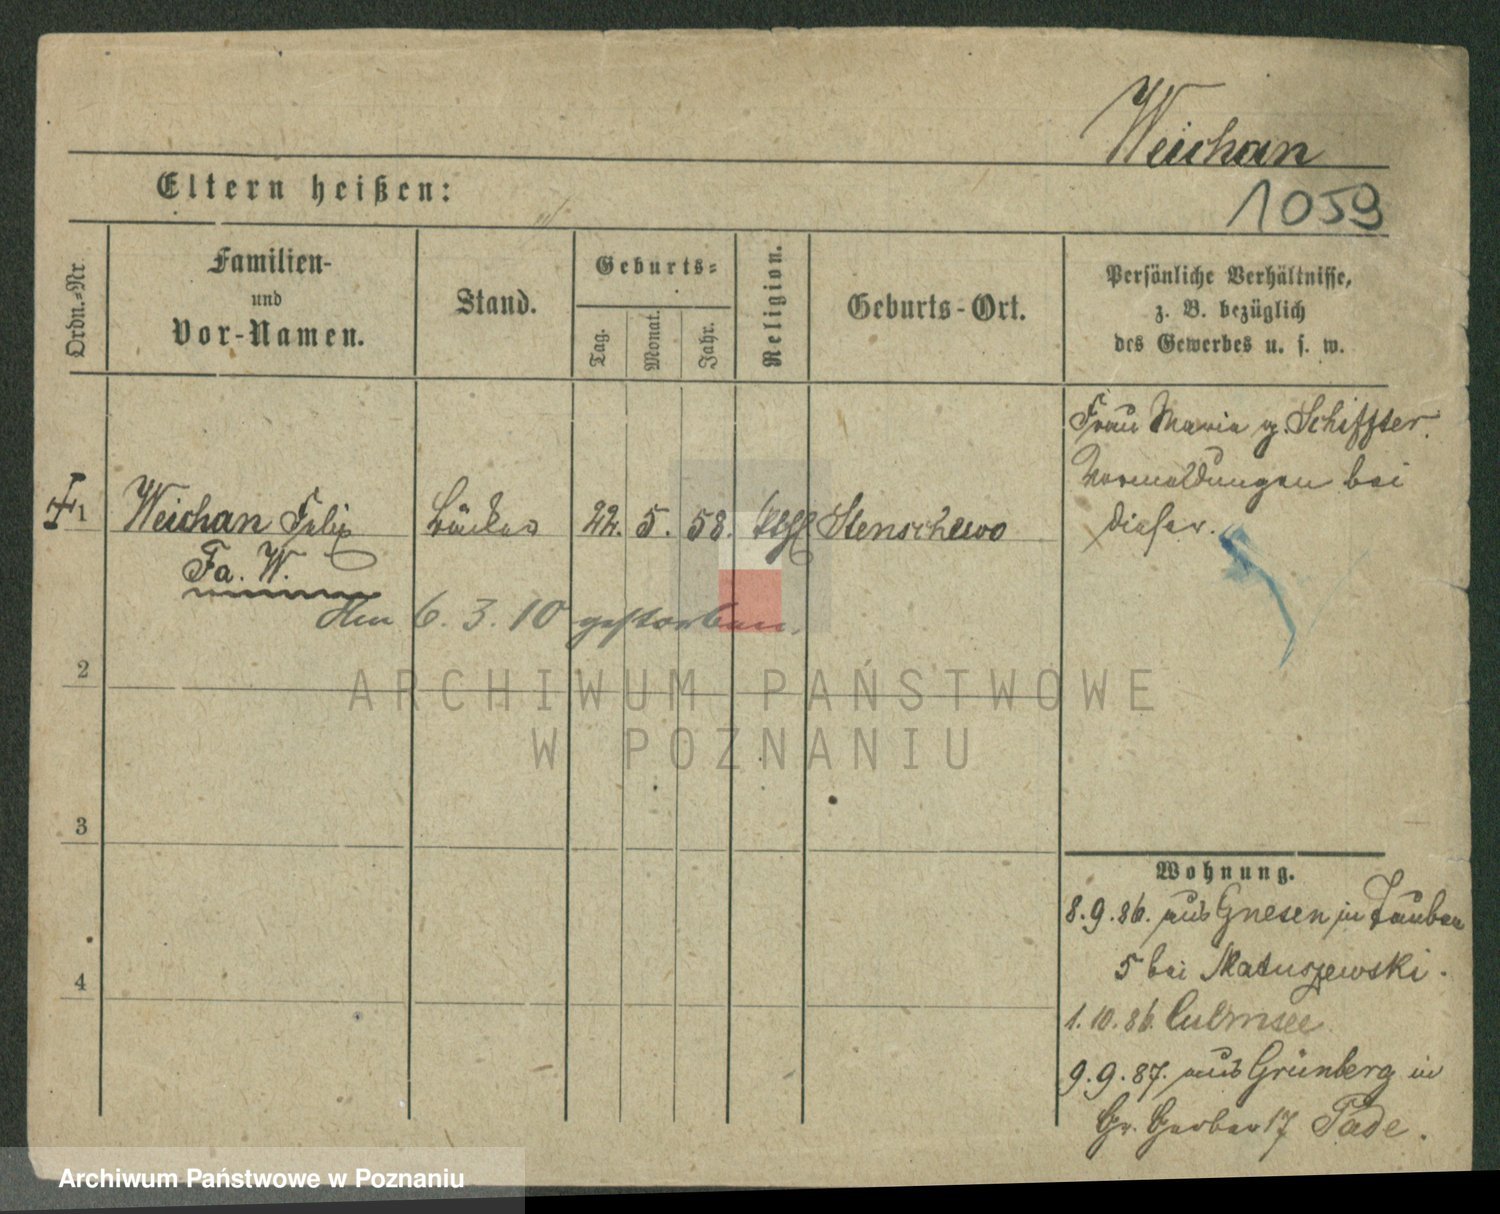 Weichan
Eltern heißen:
1059
Ordn.=Nr.
Familien-
und
Vor-Namen.
Stand.
Geburts=
Tag.
Monat.
Jahr.
Religion.
Geburts-Ort.
Persönliche Verhältnisse,
z. B. bezüglich
des Gewerbes u. s. w.
Frau Maria g. Schiffter.
Vermeldungen bei
dieser.
1 Weichan Felix Bäcker 22. 5. 58. kath Stenschewo
Fa. W.
Am 6. 3. 10 gestorben.
2
ARCHIWUM PAŃSTWOWE
W POZNANIU
3
4
Wohnung.
8.9.86. aus Gnesen in Tauben
5 bei Matuszewski.
1.10.86. Culmsee
9.9.87. aus Grünberg in
Gr. Gerber 17 Pade.
Archiwum Państwowe w Poznaniu